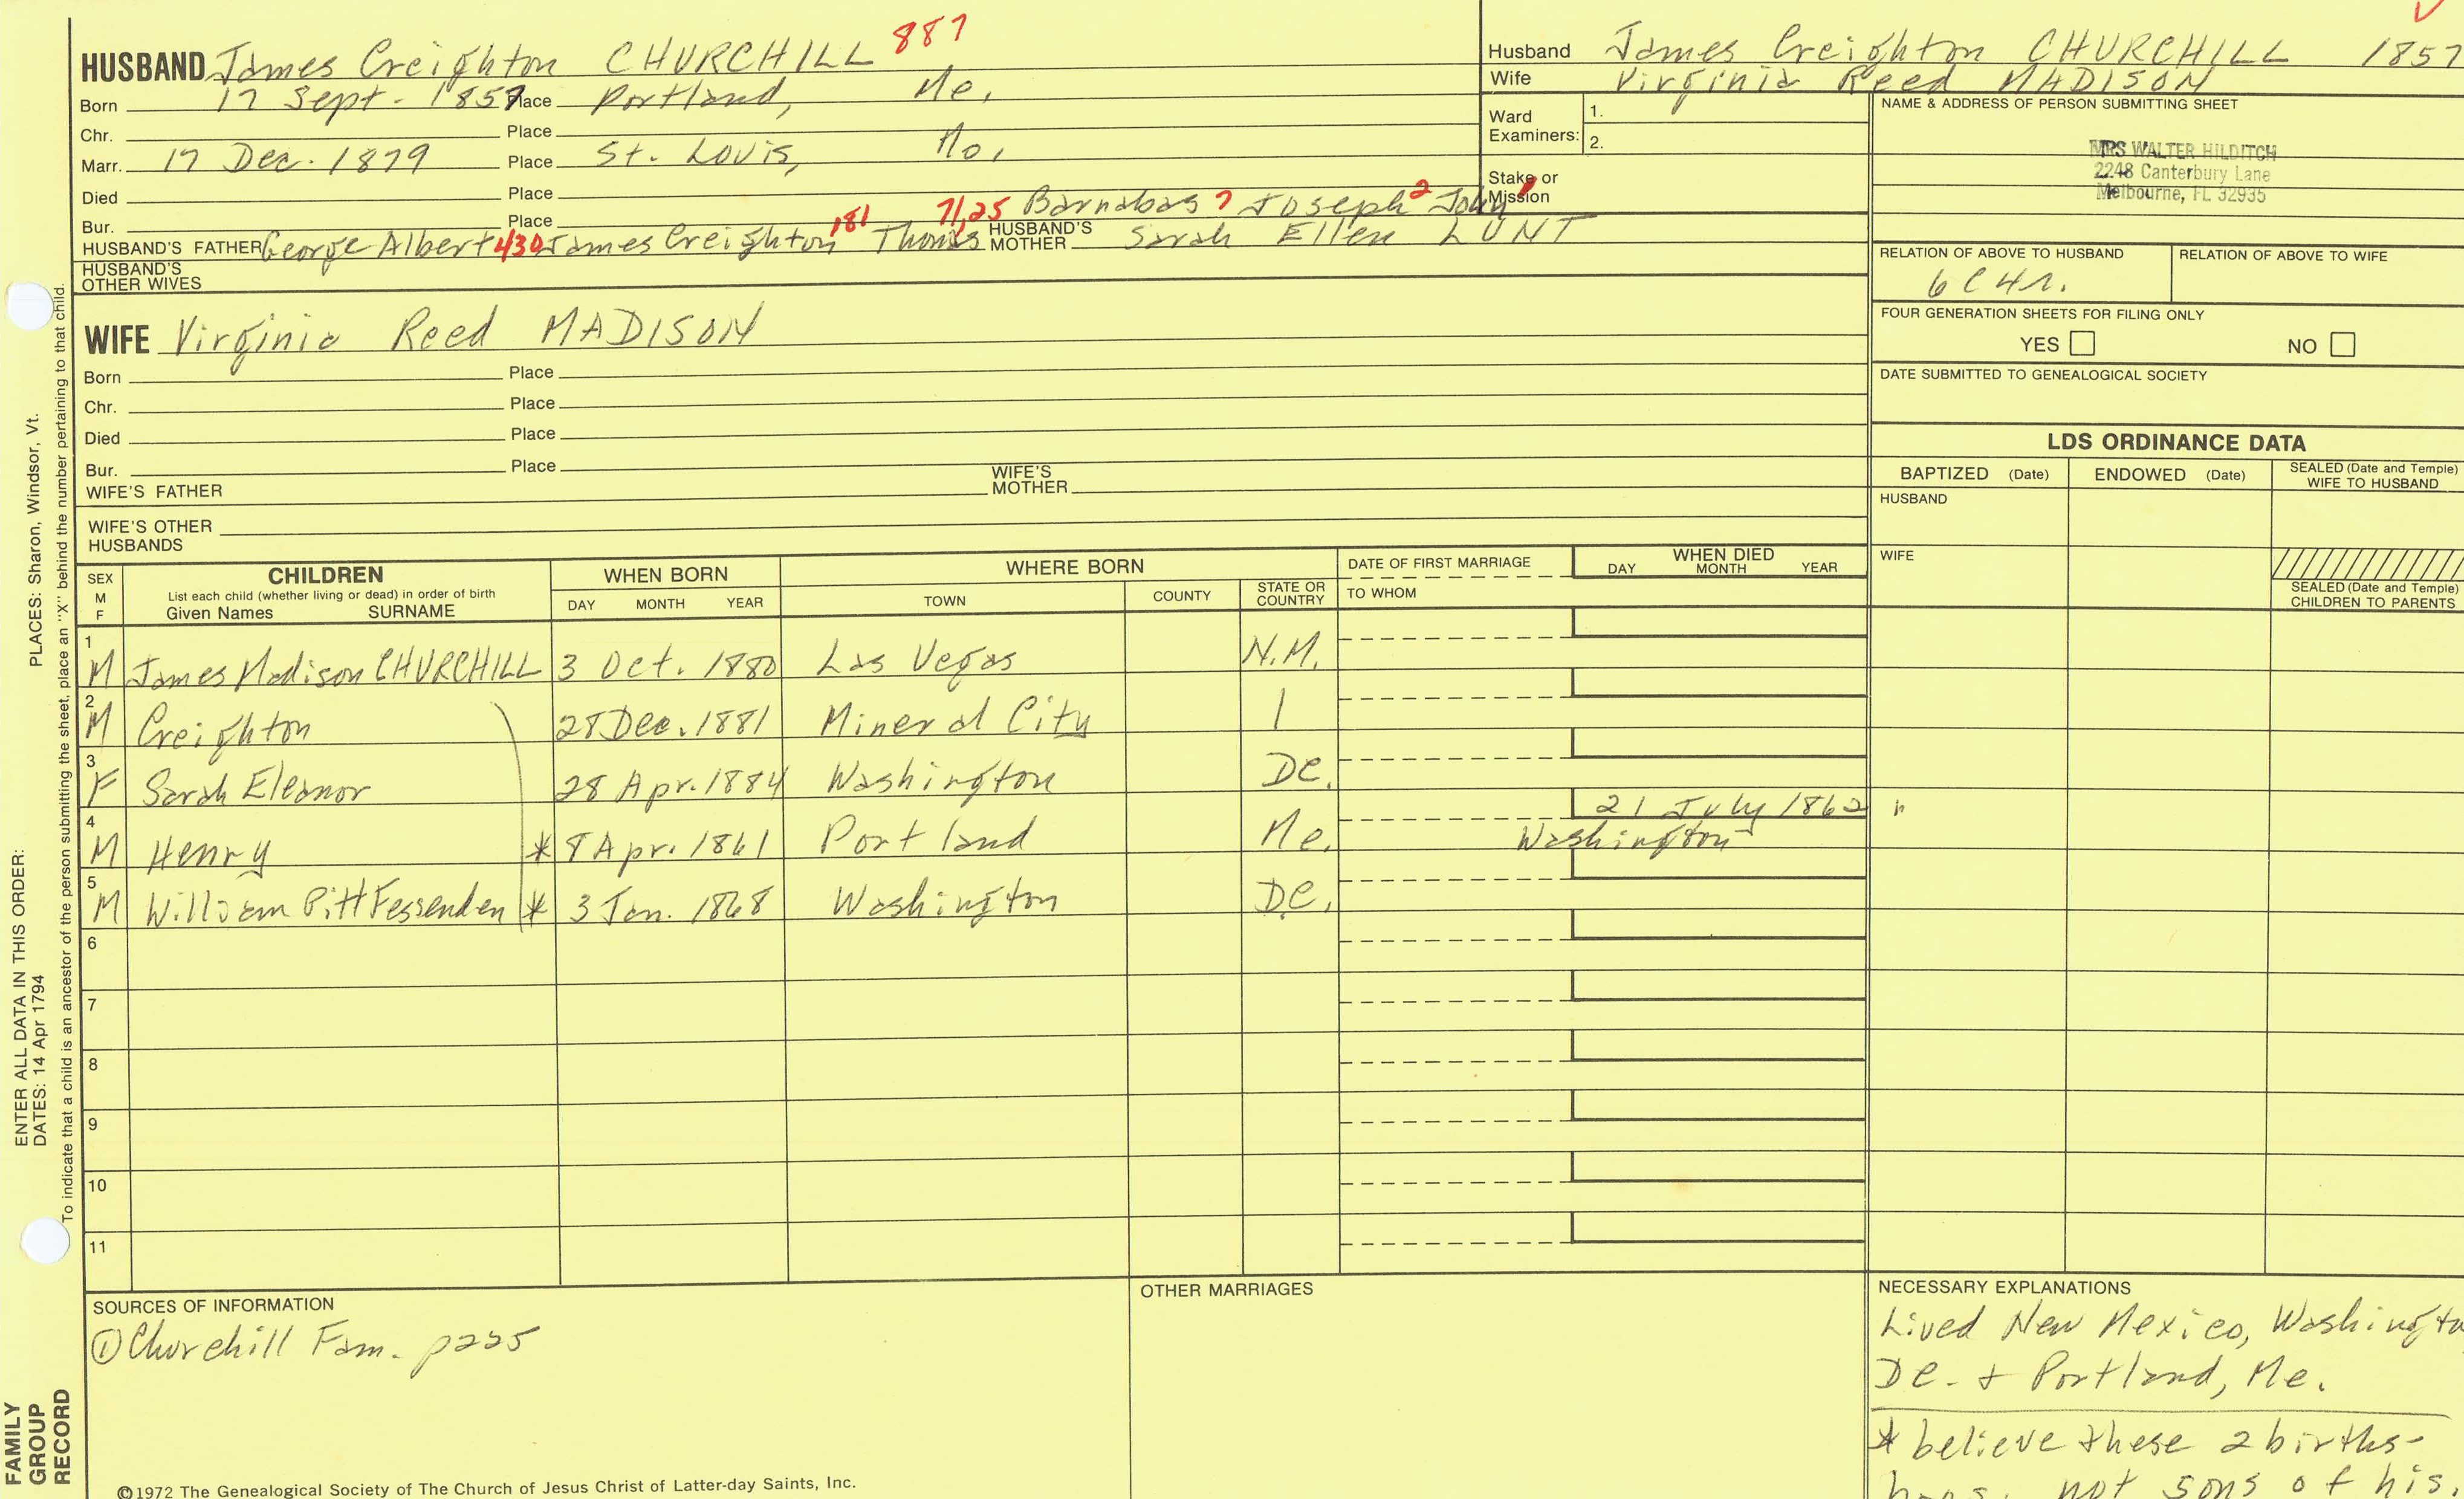 HUSBAND James Creighton CHURCHILL 887
Born 17 Sept. 1857 Place Portland, Me.
Chr. Place
Marr. 17 Dec. 1879 Place St. Louis, Mo.
Died Place
Bur. Place
181 7/25 Barnabas 7 Joseph 2 John
HUSBAND'S FATHER George Albert 430 James Creighton Thomas HUSBAND'S MOTHER Sarah Ellen LUNT
HUSBAND'S OTHER WIVES
Husband James Creighton CHURCHILL 1857
Wife Virginia Reed MADISON
Ward Examiners: 1.
2.
Stake or Mission
NAME & ADDRESS OF PERSON SUBMITTING SHEET
MRS WALTER HILDITCH
2248 Canterbury Lane
Melbourne, FL 32935
RELATION OF ABOVE TO HUSBAND RELATION OF ABOVE TO WIFE
6C4r.
FOUR GENERATION SHEETS FOR FILING ONLY
YES NO
DATE SUBMITTED TO GENEALOGICAL SOCIETY
WIFE Virginia Reed MADISON
Born Place
Chr. Place
Died Place
Bur. Place
WIFE'S FATHER WIFE'S MOTHER
WIFE'S OTHER HUSBANDS
LDS ORDINANCE DATA
BAPTIZED (Date) ENDOWED (Date) SEALED (Date and Temple) WIFE TO HUSBAND
HUSBAND
WIFE
SEALED (Date and Temple) CHILDREN TO PARENTS
SEX M F CHILDREN WHEN BORN WHERE BORN DATE OF FIRST MARRIAGE WHEN DIED
List each child (whether living or dead) in order of birth
Given Names SURNAME DAY MONTH YEAR TOWN COUNTY STATE OR COUNTRY TO WHOM DAY MONTH YEAR
1 M James Madison CHURCHILL 3 Oct. 1880 Las Vegas N.M.
2 M Creighton 28 Dec. 1881 Mineral City
3 F Sarah Eleanor 28 Apr. 1884 Washington DC.
4 M Henry * 8 Apr. 1861 Portland Me. 21 July 1862
Washington
5 M William Pitt Fessenden * 3 Jan. 1868 Washington D.C.
6
7
8
9
10
11
SOURCES OF INFORMATION
① Churchill Fam. p225
OTHER MARRIAGES
NECESSARY EXPLANATIONS
Lived New Mexico, Washingto
DC. + Portland, Me.
* believe these 2 births-
not sons of his.
©1972 The Genealogical Society of The Church of Jesus Christ of Latter-day Saints, Inc.
FAMILY GROUP RECORD
ENTER ALL DATA IN THIS ORDER:
DATES: 14 Apr 1794 PLACES: Sharon, Windsor, Vt.
To indicate that a child is an ancestor of the person submitting the sheet, place an "X" behind the number pertaining to that child.